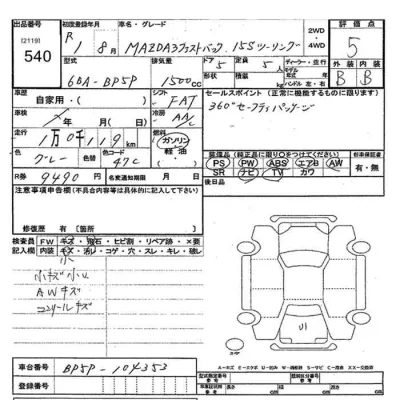 出品番号 初度登録年月 車名・グレード 2WD ・4WD 評価点
[2119] 540 R1年8月 MAZDA3ファストバック 15Sツーリング 5
型式 排気量 ドア 定員 ディーラー・並行 外装 内装
6BA-BP5P 1500cc 5 5人 形状 積載 kg モデル 年 ハンドル 左・右 B B
車歴 自家用・( ) シフト FAT セールスポイント(正常に機能するものに限ります)
車検 年( )月( )日 冷房 AAC 360°セーフティパッケージ
走行 1万0千119km 燃料 ガソリン 軽油
色 グレー 色替 色コード 47C 装備品(純正品に限り○をつけてください) 新車保証書
PS PW ABS エアB AW 有・無
SR ナビ TV カワ
R券 9490円 名変通知期限 月 日 後日品
注意事項申告欄(不具合などは詳細に記入して下さい)
修復歴 有[箇所 ]
検査員記入欄 FW キズ・飛石・ヒビ割・リペア跡・×要
内装 キズ・汚レ・コゲ・穴・スレ・キレ・破レ
小キズ小U
AWキズ
コンソールキズ
車台番号 BP5P-104353
登録番号
A-キズ E-エクボ U-凹み W-補修跡 S-サビ C-腐食 XX-交換済
型式指定番号 類別区分番号
長さ 幅 高さ